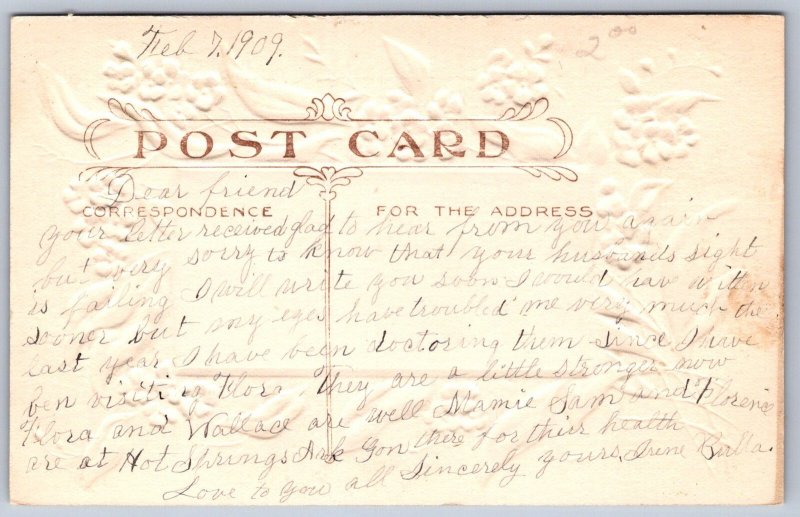 Feb 7, 1909.
2.00
POST CARD
Dear friend
CORRESPONDENCE
FOR THE ADDRESS
your letter received glad to hear from you again
but very sorry to know that your husbands sight
is failing I will write you soon I would have written
sooner but my eyes have troubled me very much the
last year I have been doctosing them since I have
ben visiting Flora. They are a little stronger now
Flora and Wallace are well Mamie Sam and Florence
are at Hot Springs Ark Gon there for thier health
Love to you all Sincerely yours, Irene